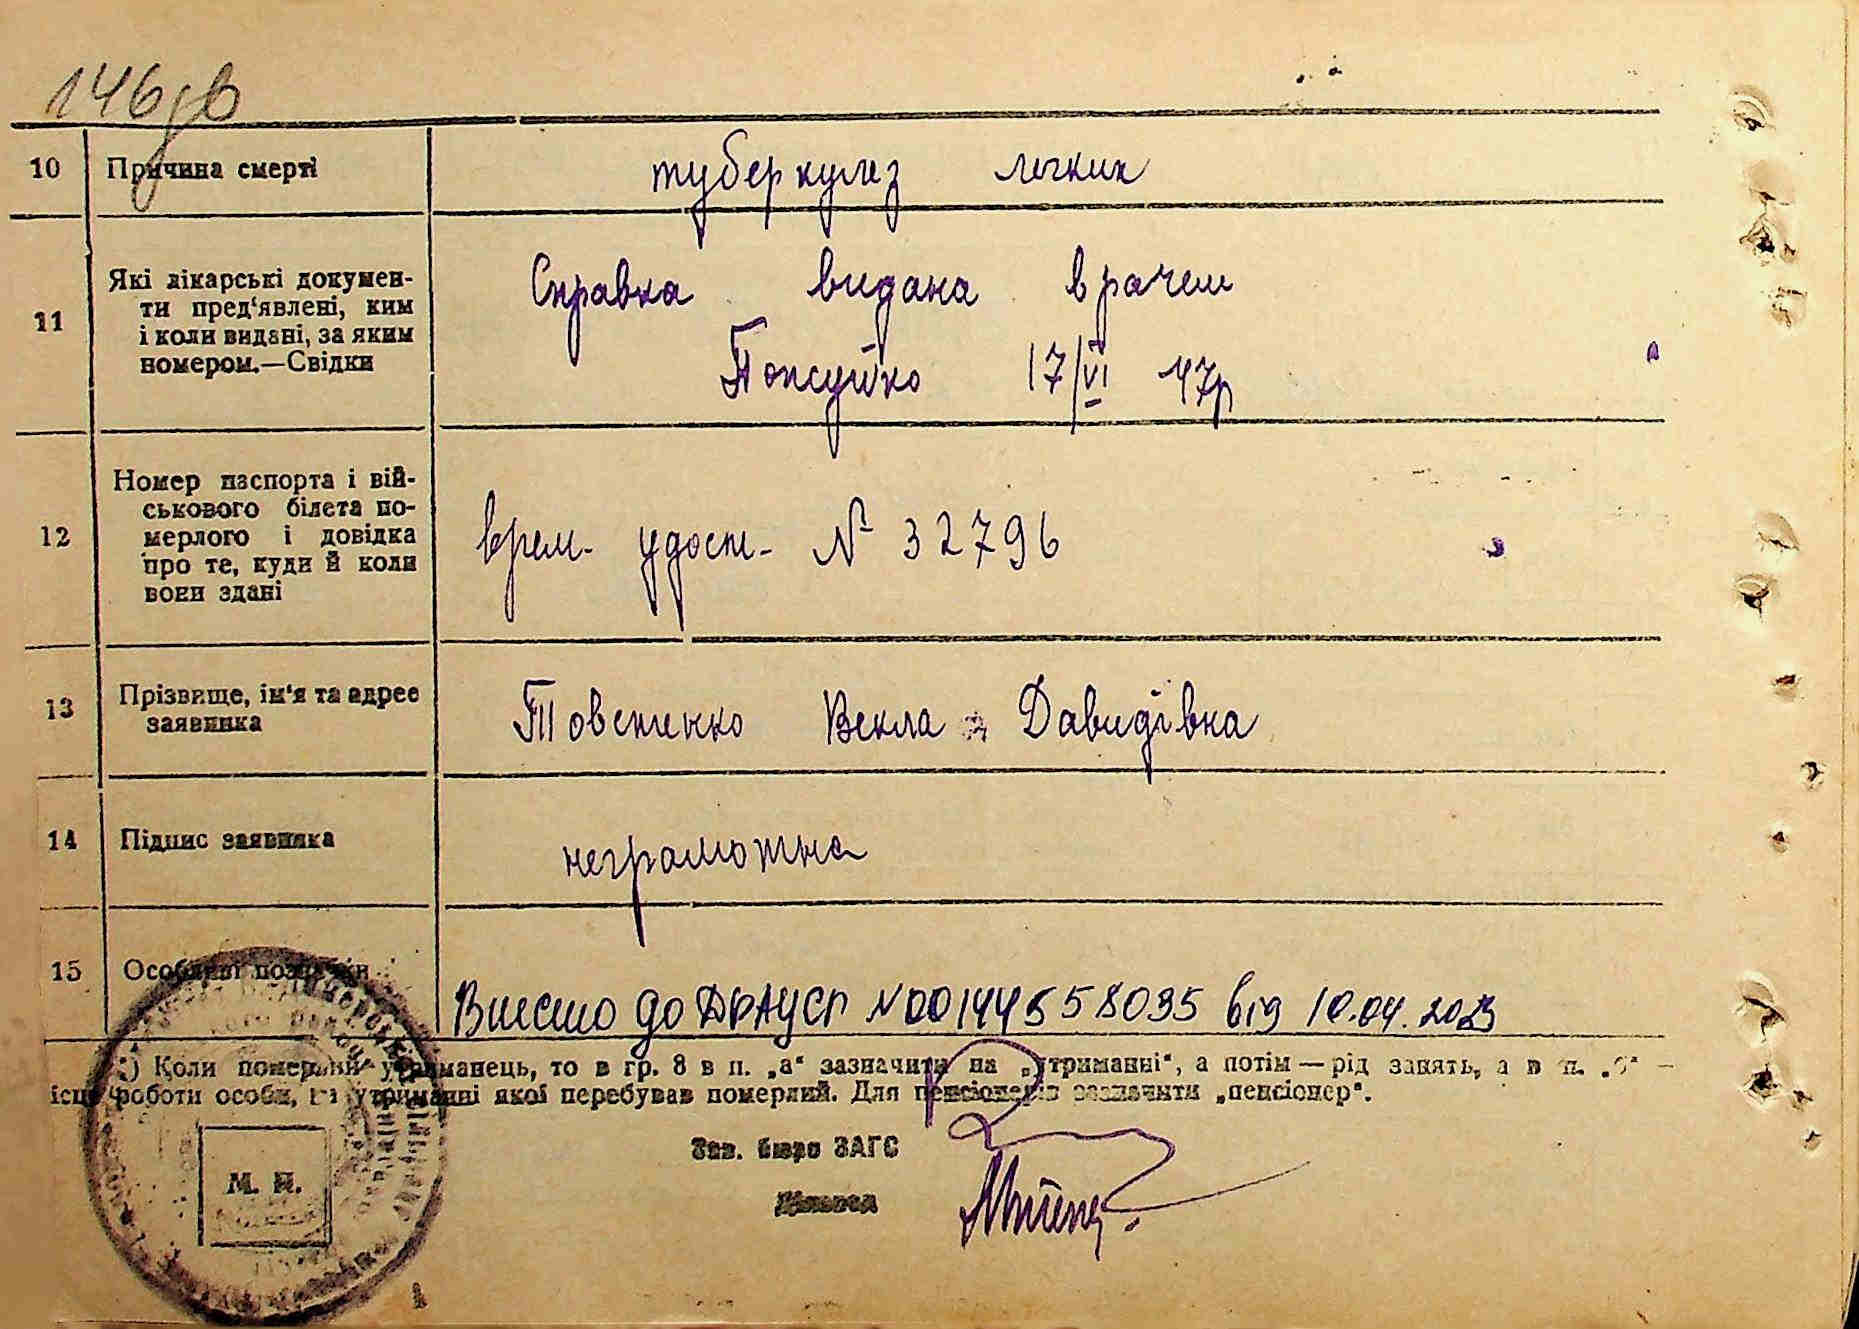 146 зв
10 Причина смерті туберкулез легких
11 Які лікарські докумен-
ти пред'явлені, ким
і коли видані, за яким
номером.—Свідки
Справка видана врачем
17/VI 47р
12 Номер паспорта і вій-
ськового білета по-
мерлого і довідка
про те, куди й коли
вони здані
врем- удост- № 32796
13 Прізвище, ім'я та адрес
заявника
Товстенко Векла Давидівка
14 Підпис заявника неграмотна
15 Особливі позначки
Внесено до ДРАЦСГ №00144558035 від 10.04.2023
*) Коли померлий утриманець, то в гр. 8 в п. „а" зазначити на „утриманні", а потім — рід занять, а в п. „б" —
місце роботи особи, на утриманні якої перебував померлий. Для пенсіонерів зазначити „пенсіонер".
Зав. бюро ЗАГС
Діловод
М. П.